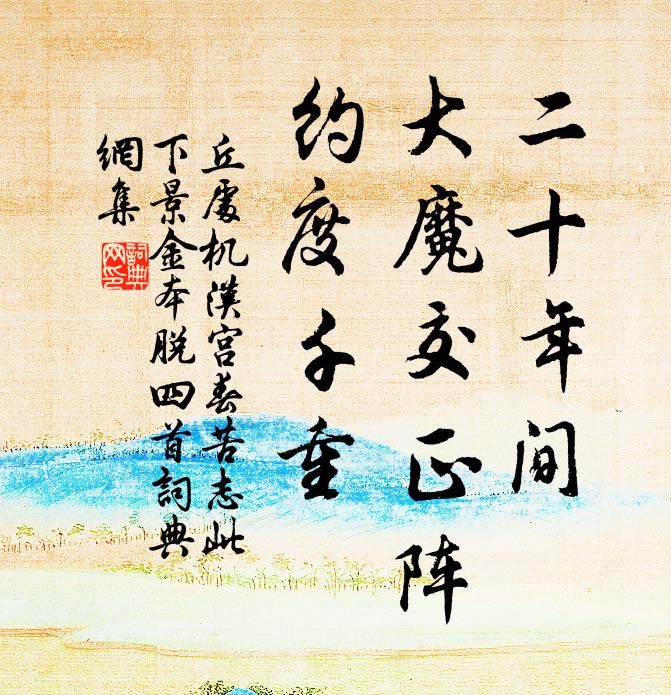 二十年间
大魔交正阵
约度千重
丘處机漢宫春苦志此
下景金本脱四首詞典
網集
詞典
网印